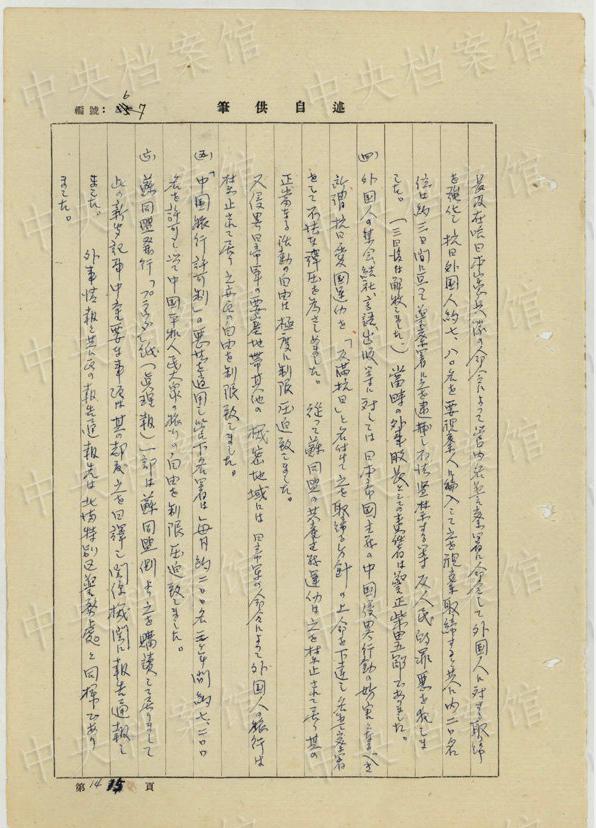 述自供筆
編號：6 7
長及在哈日本憲兵隊の命令によって管内各警察署に命令して外国人に対する取締
を強化し抗日外国人約七、八〇名を要視察人に編入して之を視察取締すると共に内二〇名
位は約三日間に亘って警察署に之を逮捕し不法監禁する等反人民的罪悪を犯しま
した。（三日後は解放しました）当時の外事股長としての責任者は警正柴田五郎でありました。
(四) 外国人の集会結社言語出版等に対しては日本帝国主義の中国侵畧行動の妨害 べき
所謂抗日愛国運動を「反満抗日」と名付けて之を取締る方針の上命を下達し各警察署
をして不法な弾圧を為さしめました。従って蘇同盟の共産主義運動は之を禁止されて居り其の
正当なる活動の自由は極度に制限圧迫致しました。
又侵畧日帝軍の要塞地帯其他の機密地域には日帝軍の命令によって外国人の旅行は
禁止されて居り之等の自由を制限致しました。
(五)「中国旅行許可制」の悪法を適用し管下各署は毎月約二〇〇名 間約七、二〇〇
名を許可し以て中国平和人民大衆の旅行の自由を制限圧迫致しました。
(六) 蘇同盟発行「プラウダ」紙（真理報）一部は蘇同盟側より之を購読して居りまして
此の新聞記事中重要な事項は其の都度之を日訳し関係機関に報告通報し
ました。
外事情報 の報告通報先は北満特別区警務處と同様であり
ました。
第 14 15 頁
中央档案馆